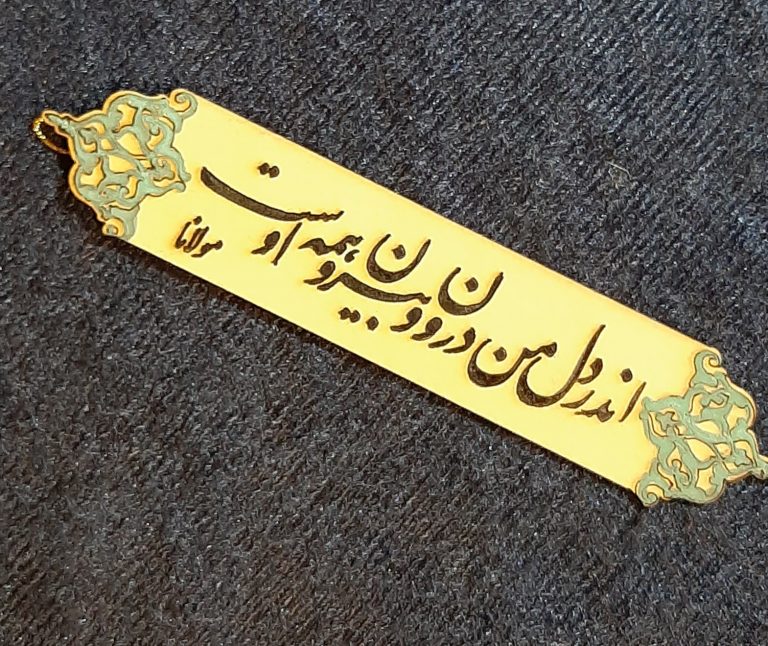 اندر دل من درون و بیرون همه اوست
مولانا